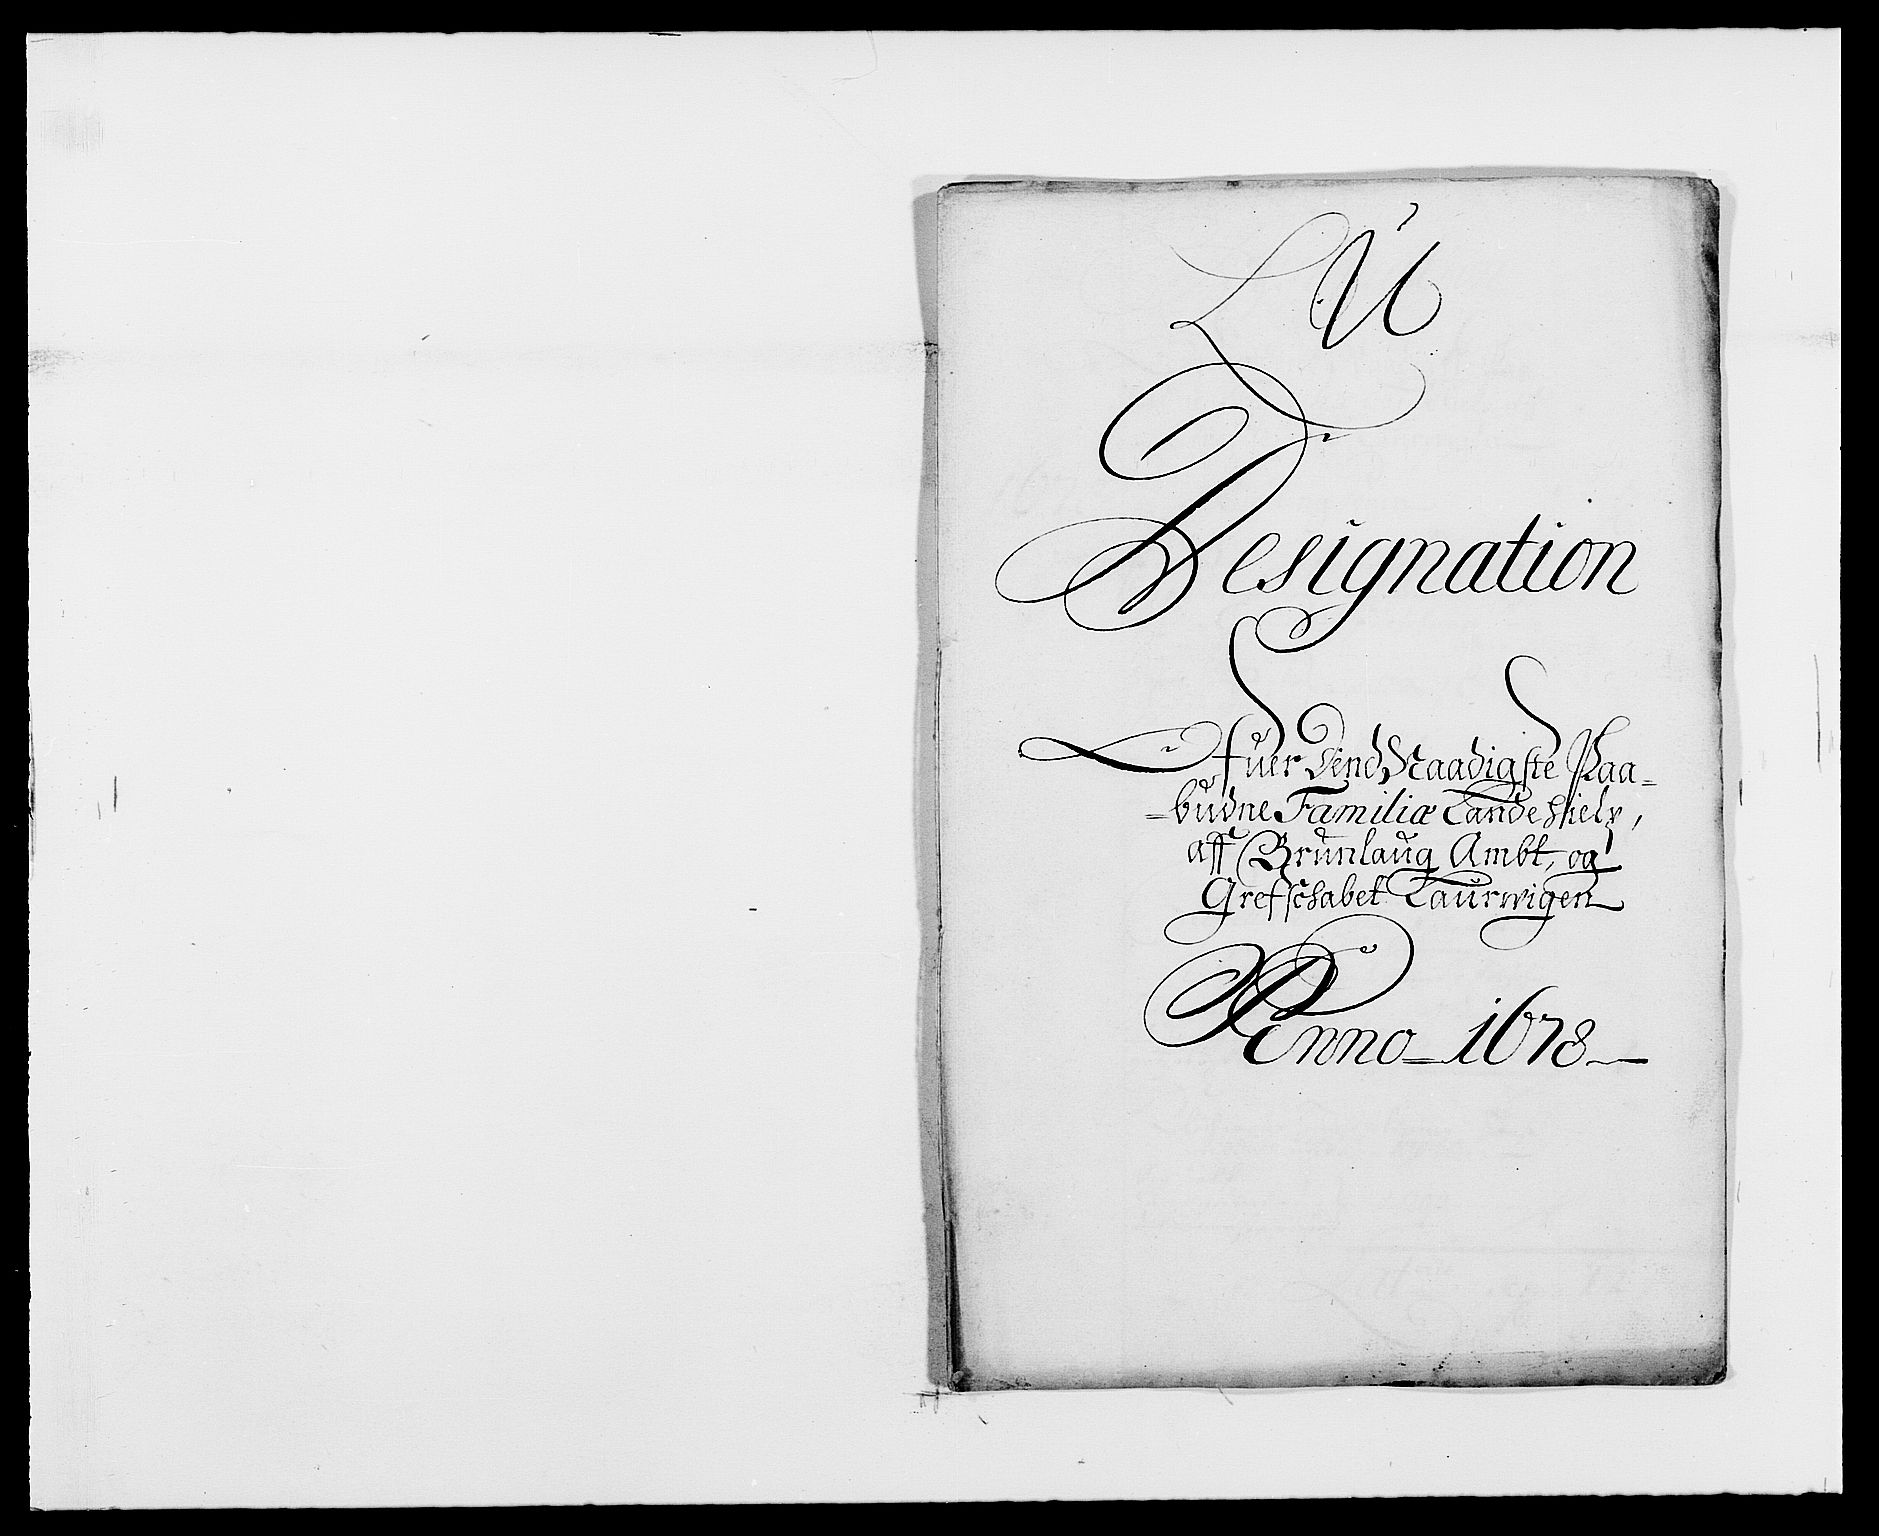 Designation
Ofuer dend Naadigste Paa-
-budne Familiæ Landeshielp,
aff Brunlaug Ambt, og
Grefschabet Laurwigen
Anno 1678